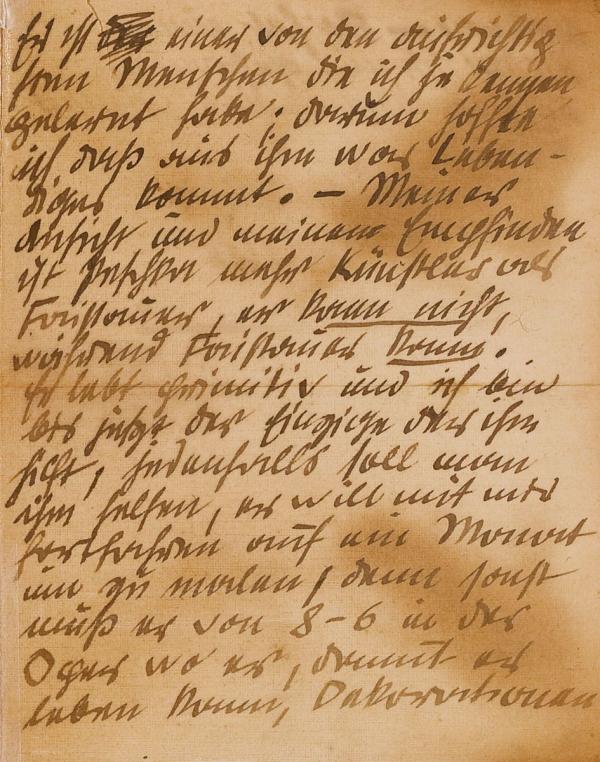 Er ist einer von den aufrichtig
sten Menschen die ich je kennen
gelernt habe; darum hoffe
ich daß aus ihm was Leben-
diges kommt. – Meiner
Ansicht und meinem Empfinden
ist Peschka mehr Künstler als
Faistauer, er kann nicht,
während Faistauer kann.
Er lebt primitiv und ich bin
bis jetzt der Einzige der ihm
hilft, jedenfalls soll man
ihm helfen, er will mit mir
fortfahren auf ein Monat
um zu malen, denn sonst
muß er von 8–6 in der
Oper wo er, damit er
leben kann, Dekorationen